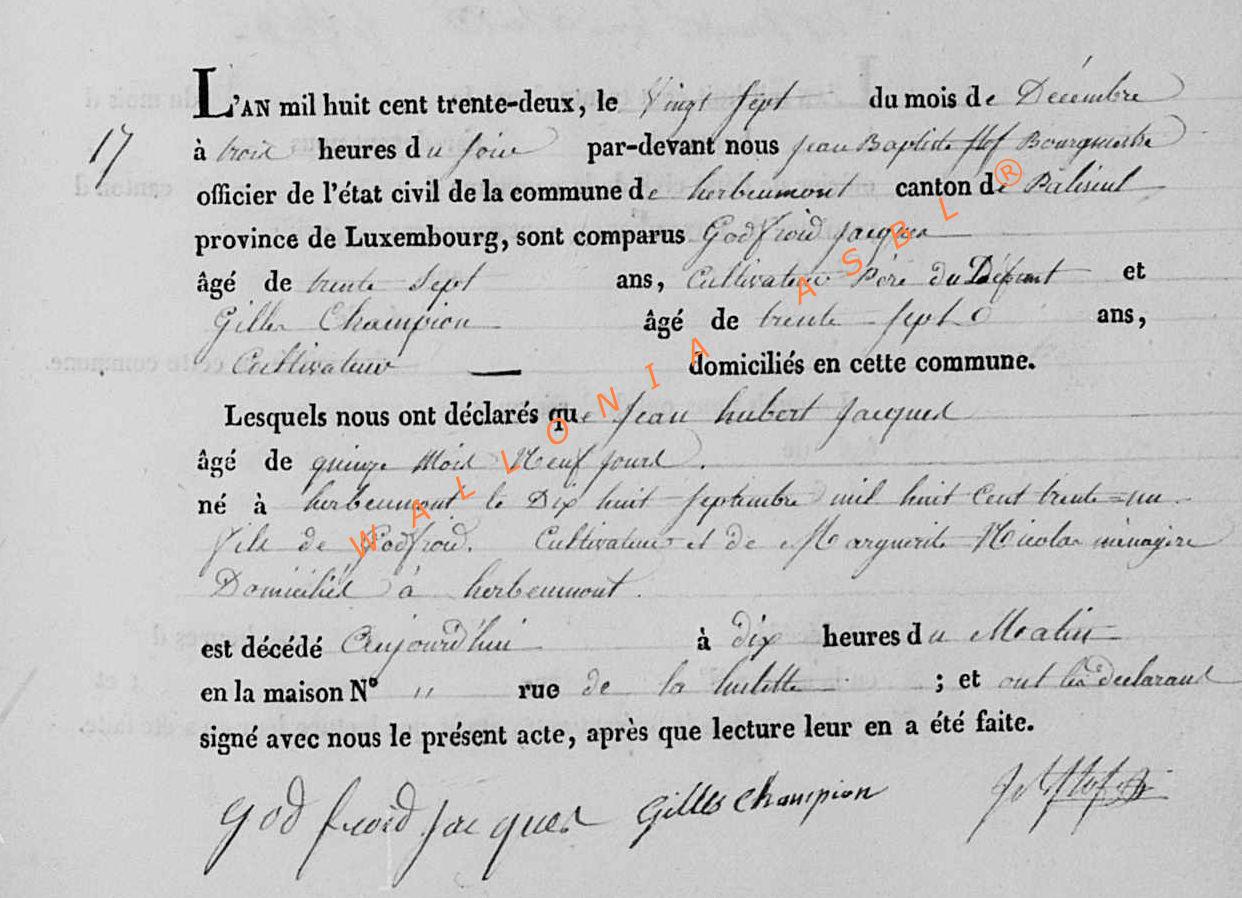 L'AN mil huit cent trente-deux, le Vingt Sept du mois de Décembre
17
à trois heures du soir par-devant nous jean Baptiste Bourgmestre
officier de l'état civil de la commune de herbeumont canton de Paliseul
province de Luxembourg, sont comparus Godfroid jacques
âgé de trente sept ans, Cultivateur Père du Défunt et
Gilles Champion âgé de trente sept ans,
Cultivateur — domiciliés en cette commune.
Lesquels nous ont déclarés que Jean hubert Jacques
âgé de quinze Mois Neuf jours.
né à herbeumont le Dix huit septembre mil huit Cent trente=un
fils de Godfroid. Cultivateur et de Marguerite Nicolas ménagère
Domiciliés à herbeumont.
est décédé Aujourd'hui à dix heures du Matin
en la maison N° " rue de la hulette ; et ont les déclarans
signé avec nous le présent acte, après que lecture leur en a été faite.
Godfroid Jacques Gilles Champion
WALLONIA ASBL ®